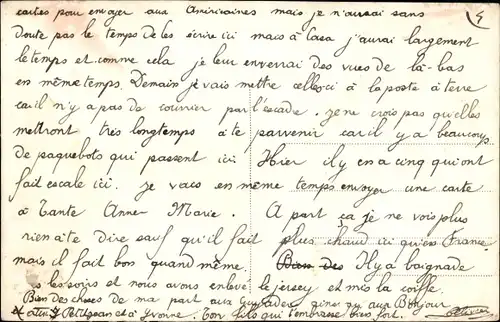 cartes pour envoyer aux Américaines mais je n'aurai sans
doute pas le temps de les écrire ici mais à Casa j'aurai largement
le temps et comme cela je leur enverrai des vues de là-bas
en même temps. Demain je vais mettre celles-ci à la poste à terre
car il n'y a pas de courrier par l'escade. je ne crois pas qu'elles
mettront très longtemps à te parvenir car il y a beaucoup
de paquebots qui passent ici. Hier il y en a cinq qui ont
fait escale ici. je vais en même temps envoyer une carte
à Tante Anne-Marie. A part ça je ne vois plus
rien à te dire sauf qu'il fait plus chaud ici qu'en France
mais il fait bon quand même. Bien des Il y a baignade
les soirs et nous avons enlevé le jersey et mis la coiffe.
Bien des choses de ma part aux ainsi qu'aux Bonjour
Petitjean et à Yvonne. Ton fils qui t'embrasse bien fort.